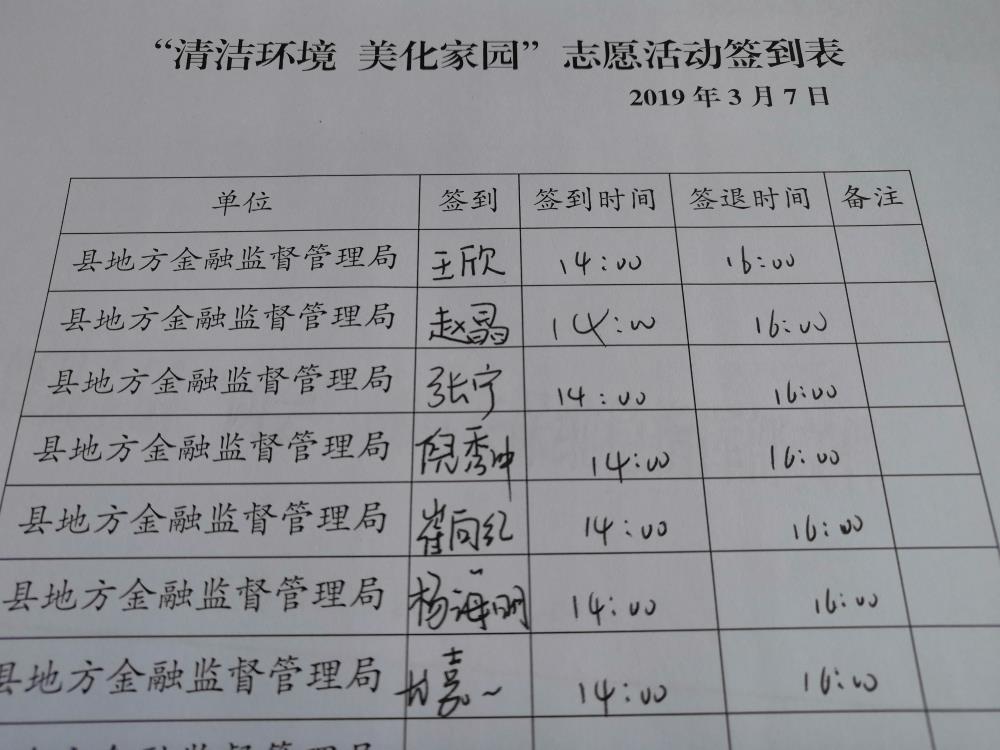 “清洁环境 美化家园”志愿活动签到表
2019年3月7日
单位 签到 签到时间 签退时间 备注
县地方金融监督管理局 王欣 14:00 16:00
县地方金融监督管理局 赵晶 14:00 16:00
县地方金融监督管理局 张宁 14:00 16:00
县地方金融监督管理局 倪秀冲 14:00 16:00
县地方金融监督管理局 崔向红 14:00 16:00
县地方金融监督管理局 杨海明 14:00 16:00
县地方金融监督管理局 14:00 16:00
方金融监督管理局